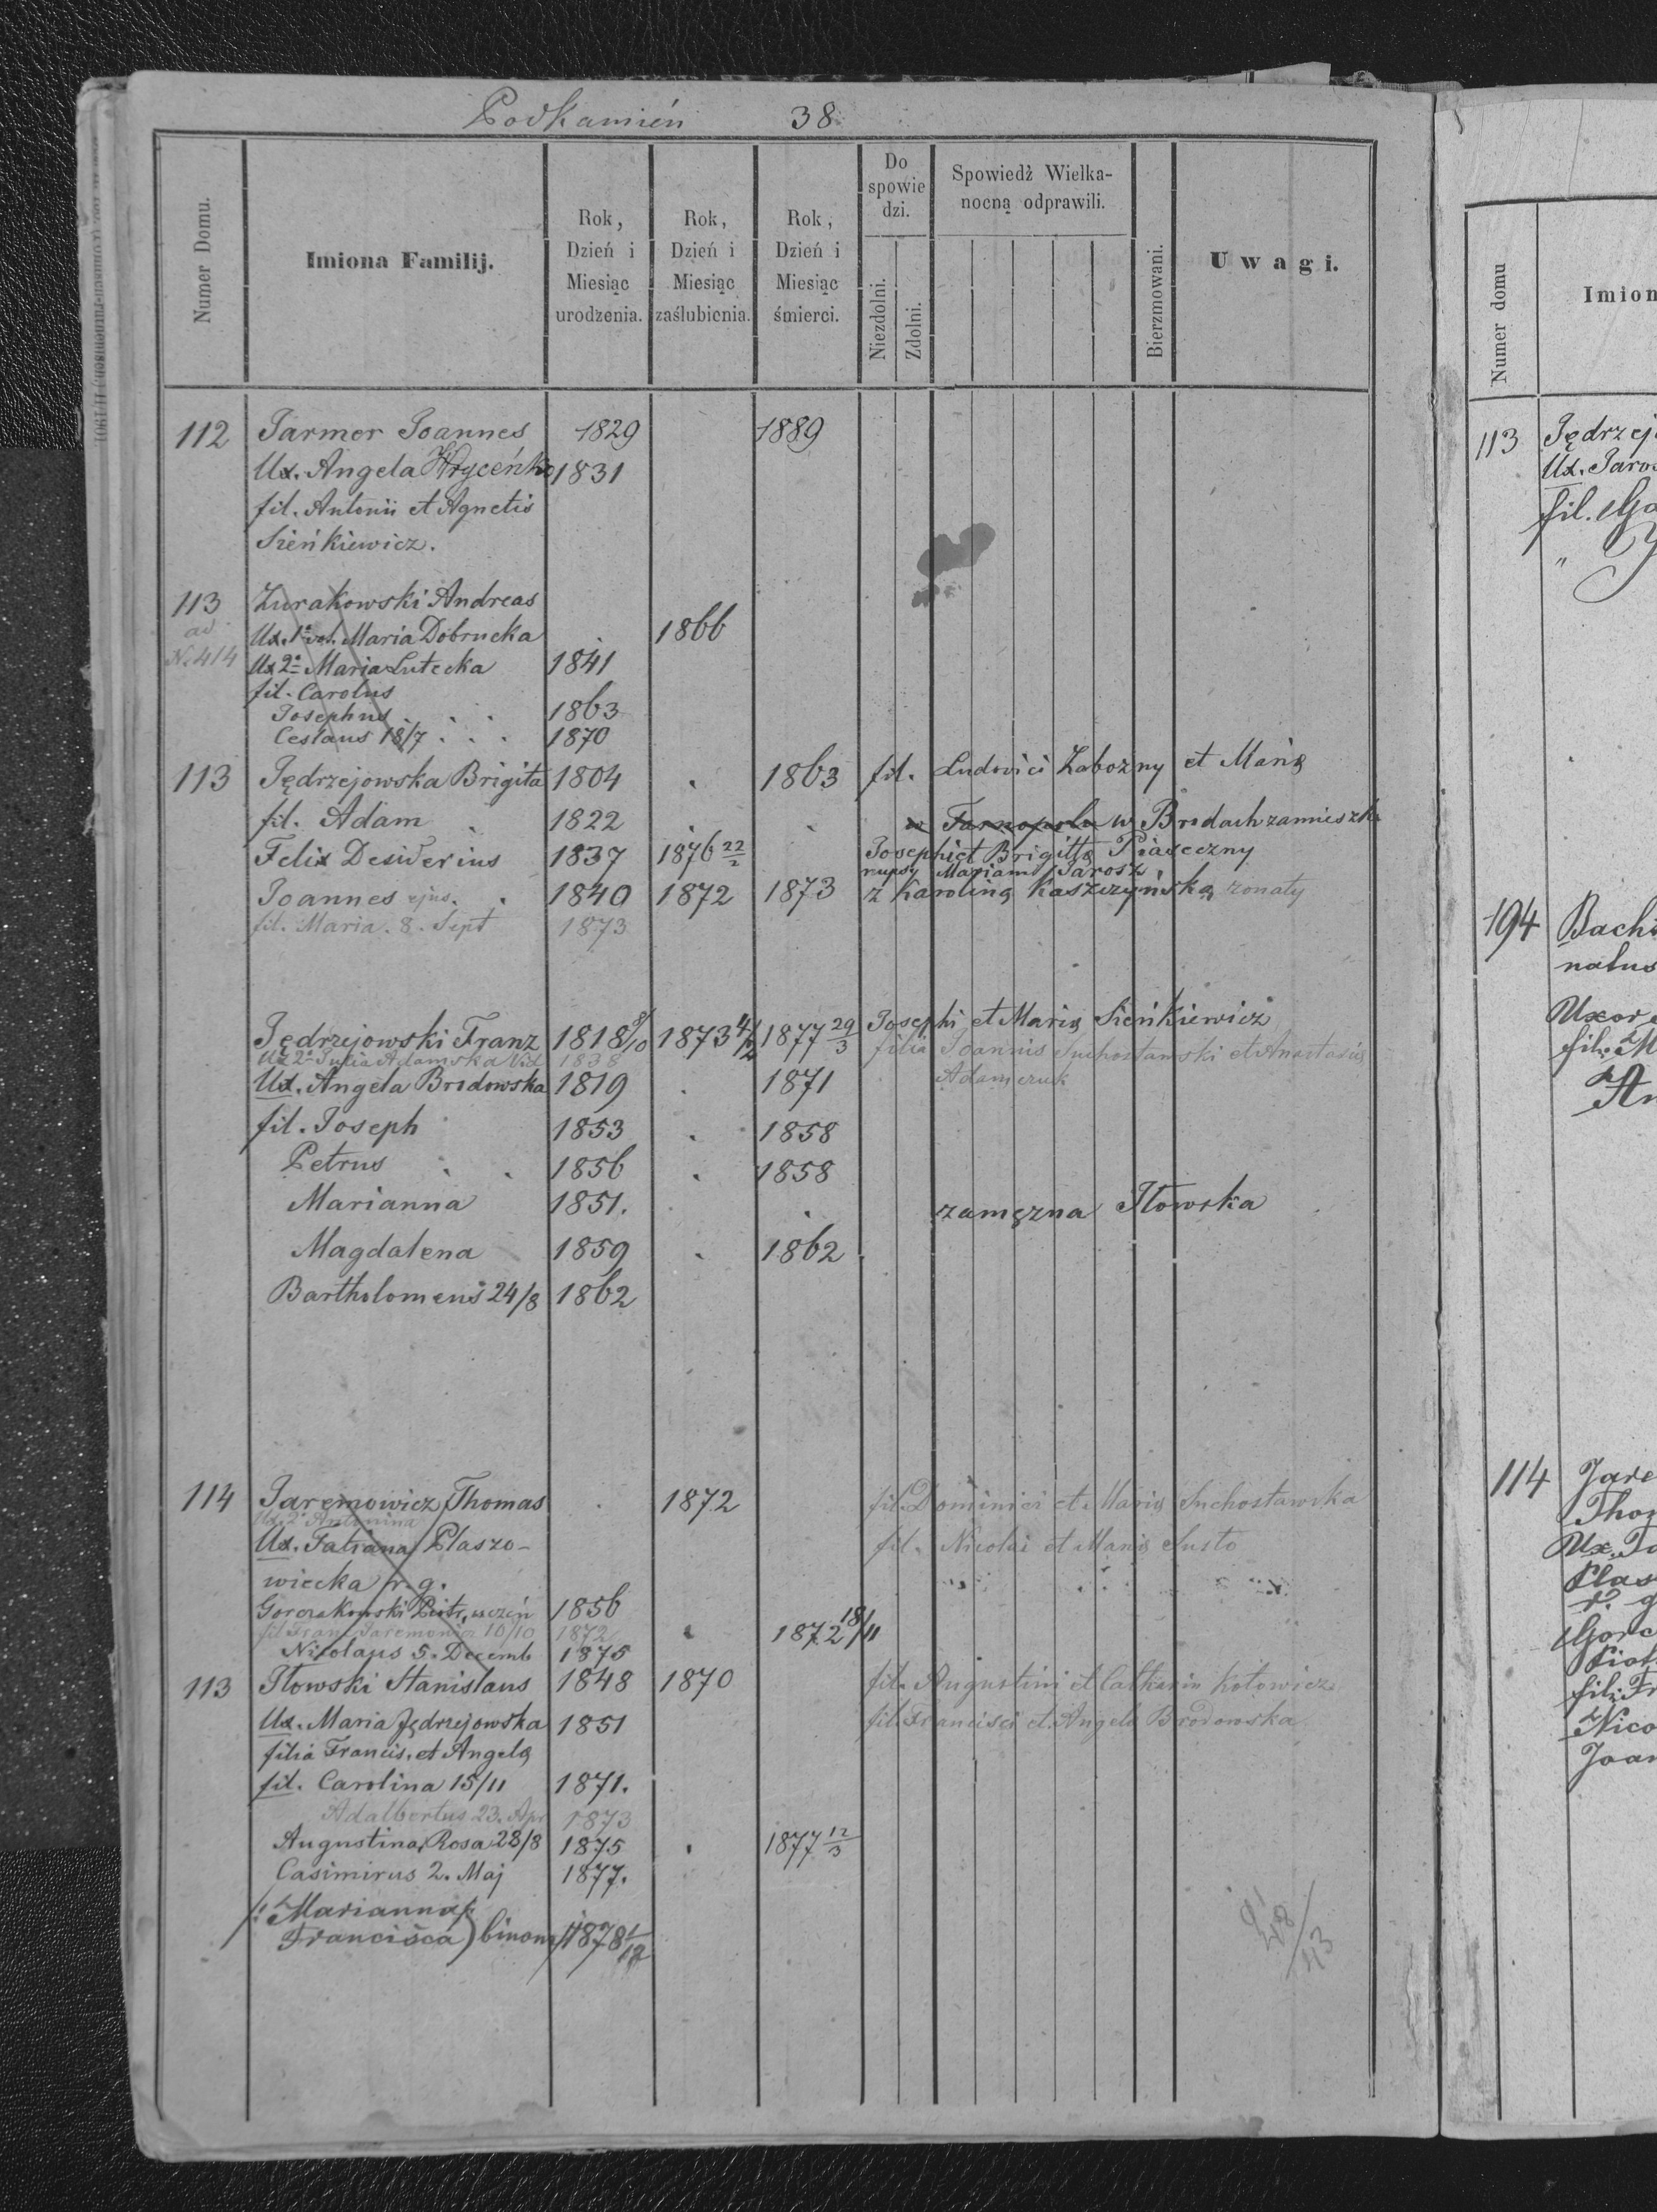 Podkamień 38
Numer Domu.
Imiona Familij.
Rok, Dzień i Miesiąc urodzenia.
Rok, Dzień i Miesiąc zaślubienia.
Rok, Dzień i Miesiąc śmierci.
Do spowiedzi.
Niezdolni.
Zdolni.
Spowiedź Wielkanocną odprawili.
Bierzmowani.
Uwagi.
112 Jarmer Joannes 1829 1889
Ux. Angela Hryceńko 1831
fil. Antonii et Agnetis
Sieńkiewicz.
113 Żurakowski Andreas
ad Ux. 1a vol. Maria Dobrucka 1866
N. 414 Ux 2a Maria Lutecka 1841
fil. Carolus
Josephus 1863
Ceslaus 18/7 1870
113 Jędrzejowska Brigita 1804 1863 fil. Ludovici Zabozny et Marię
fil. Adam 1822 w Tarnopolu w Brodach zamieszk.
Felix Desiderius 1837 1876 22/2 Josephi et Brigittę Piaseczny
nupsy Mariam Jarosz
Joannes ejus. 1840 1872 1873 z Karoliną Kaszczyńską zonaty
fil. Maria. 8. Sept 1873
Jędrzejowski Franz 1818 8/10 1873 4/2 1877 29/3 Josephi et Marię Sieńkiewicz
Ux 2a Julia Adamska Vid 1838 filia Joannis Suchostawski et Anastasię
Adamczuk
Ux. Angela Brodowska 1819 1871
fil. Joseph 1853 1858
Petrus 1856 1858
Marianna 1851. zamęzna Iłowska
Magdalena 1859 1862
Bartholomeus 24/8 1862
114 Jaremowicz Thomas 1872 fil. Dominici et Marię Suchostawska
Ux. 2a Antonina
Ux. Tatiana Plaszo- fil. Nicolai et Marię Susto
wiecka r. g.
Gorczakowski Piotr, uczeń 1856
fil Franc Jaremowicz 10/10 1872 1872 18/11
Nicolaus 5. Decemb 1875
113 Iłowski Stanislaus 1848 1870 fil. Augustini et Catharin Kotowicz
Ux. Maria Jędrzejowska 1851 fil. Francisci et Angelę Brodowska
filia Francis. et Angelę
fil. Carolina 15/11 1871.
Adalbertus 23. Apr 1873
Augustina Rosa 28/8 1875 1877 12/3
Casimirus 2. Maj 1877.
Marianna
Francisca) binom 1878 1/12
Numer domu
Imion
113 Jędrzej
Ux. Jaros
fil.
194
natus
Uxor
fil.
114 Jare
Thom
Ux. Ta
Plas
r. g
Gorc
Piot
fil. Fr
Nico
Joan